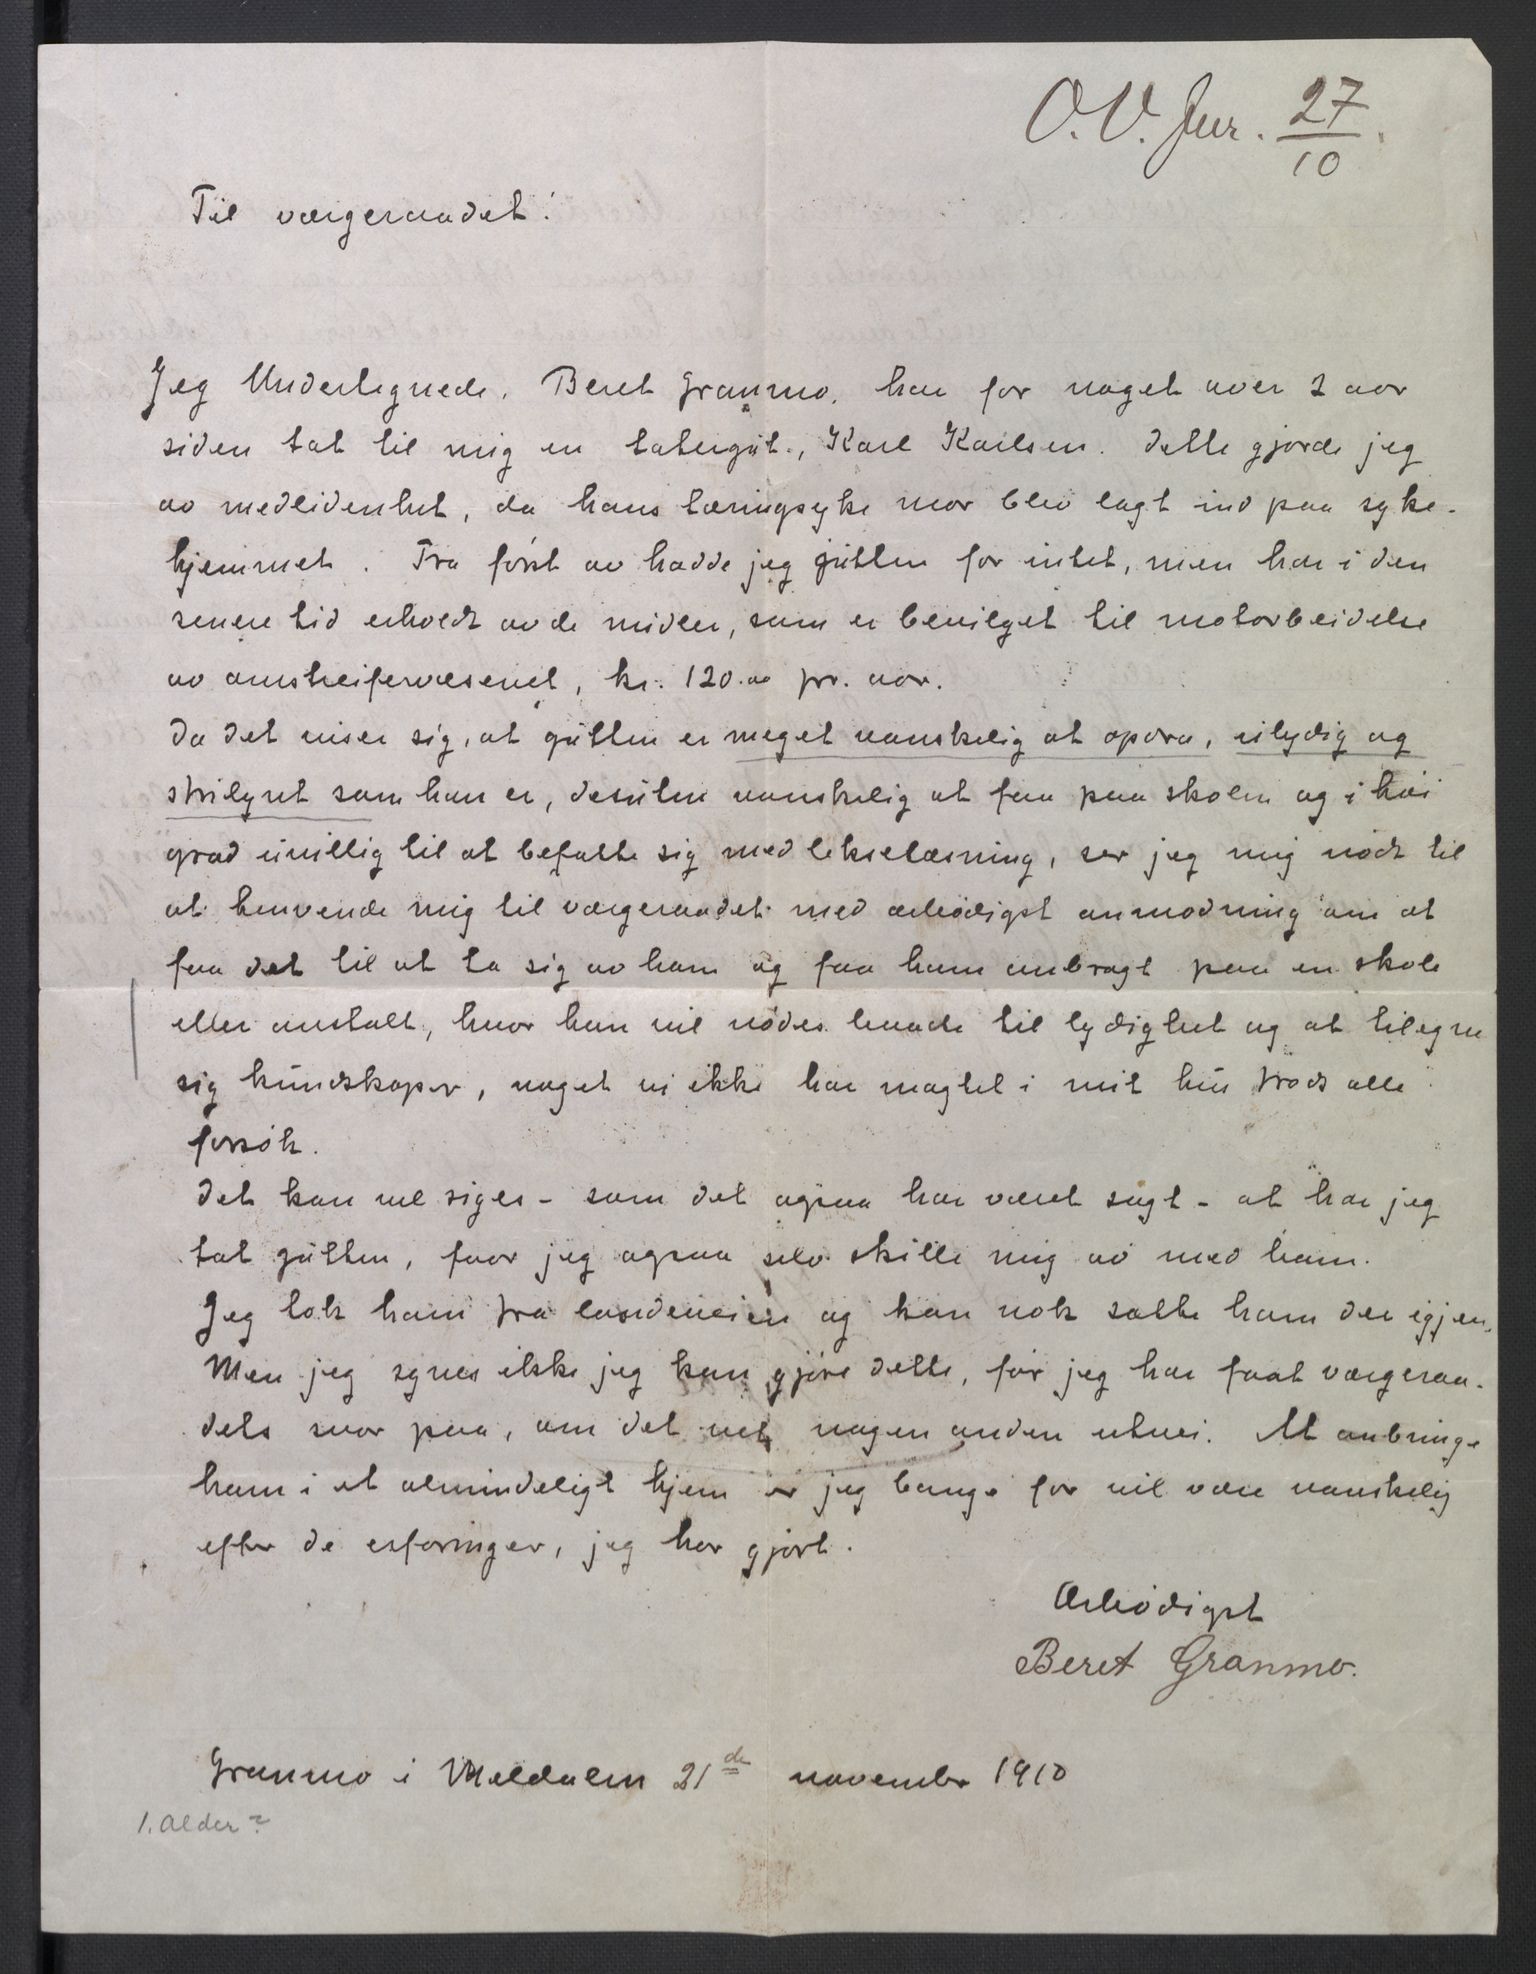 O. V. Jur. 27/10.
Til værgeraadet!
Jeg Undertegnede, Beret Granmo, har for noget over 2 aar
siden tat til mig en tatergut, Karl Karlsen. Dette gjorde jeg
av medlidenhet, da hans tæringsyke mor blev lagt ind paa syke-
hjemmet. Fra först av hadde jeg gutten for intet, men har i den
senere tid erholdt av de midler, som er bevilget til motarbeidelse
av omstreifervæsenet, kr. 120.00 pr. aar.
Da det viser sig, at gutten er meget vanskelig at opdra, ulydig og
strilynt som han er, desuten vanskelig at faa paa skolen og i höi
grad uvillig til at befatte sig med lekselæsning, ser jeg mig nödt til
at henvende mig til værgeraadet med ærbödigst anmodning om at
faa det til at ta sig av ham og faa ham anbragt paa en skole
eller anstalt, hvor han vil nödes baade til lydighet og at tilegne
sig kundskaper, noget vi ikke har magtet i mit hus trods alle
forsök.
Det kan vel siges - som det ogsaa har været sagt - at har jeg
tat gutten, faar jeg ogsaa selv skille mig av med ham.
Jeg tok ham fra landeveien og kan nok sætte ham der igjen.
Men jeg synes ikke jeg kan gjöre dette, för jeg har faat værgeraa-
dets svar paa, om det vet nogen anden utvei. At anbringe
ham i et almindeligt hjem er jeg bange for vil være vanskelig
efter de erfaringer, jeg har gjort.
Ærbödigst
Beret Granmo.
Granmo i Meldalen 21de november 1910
1. Alder?